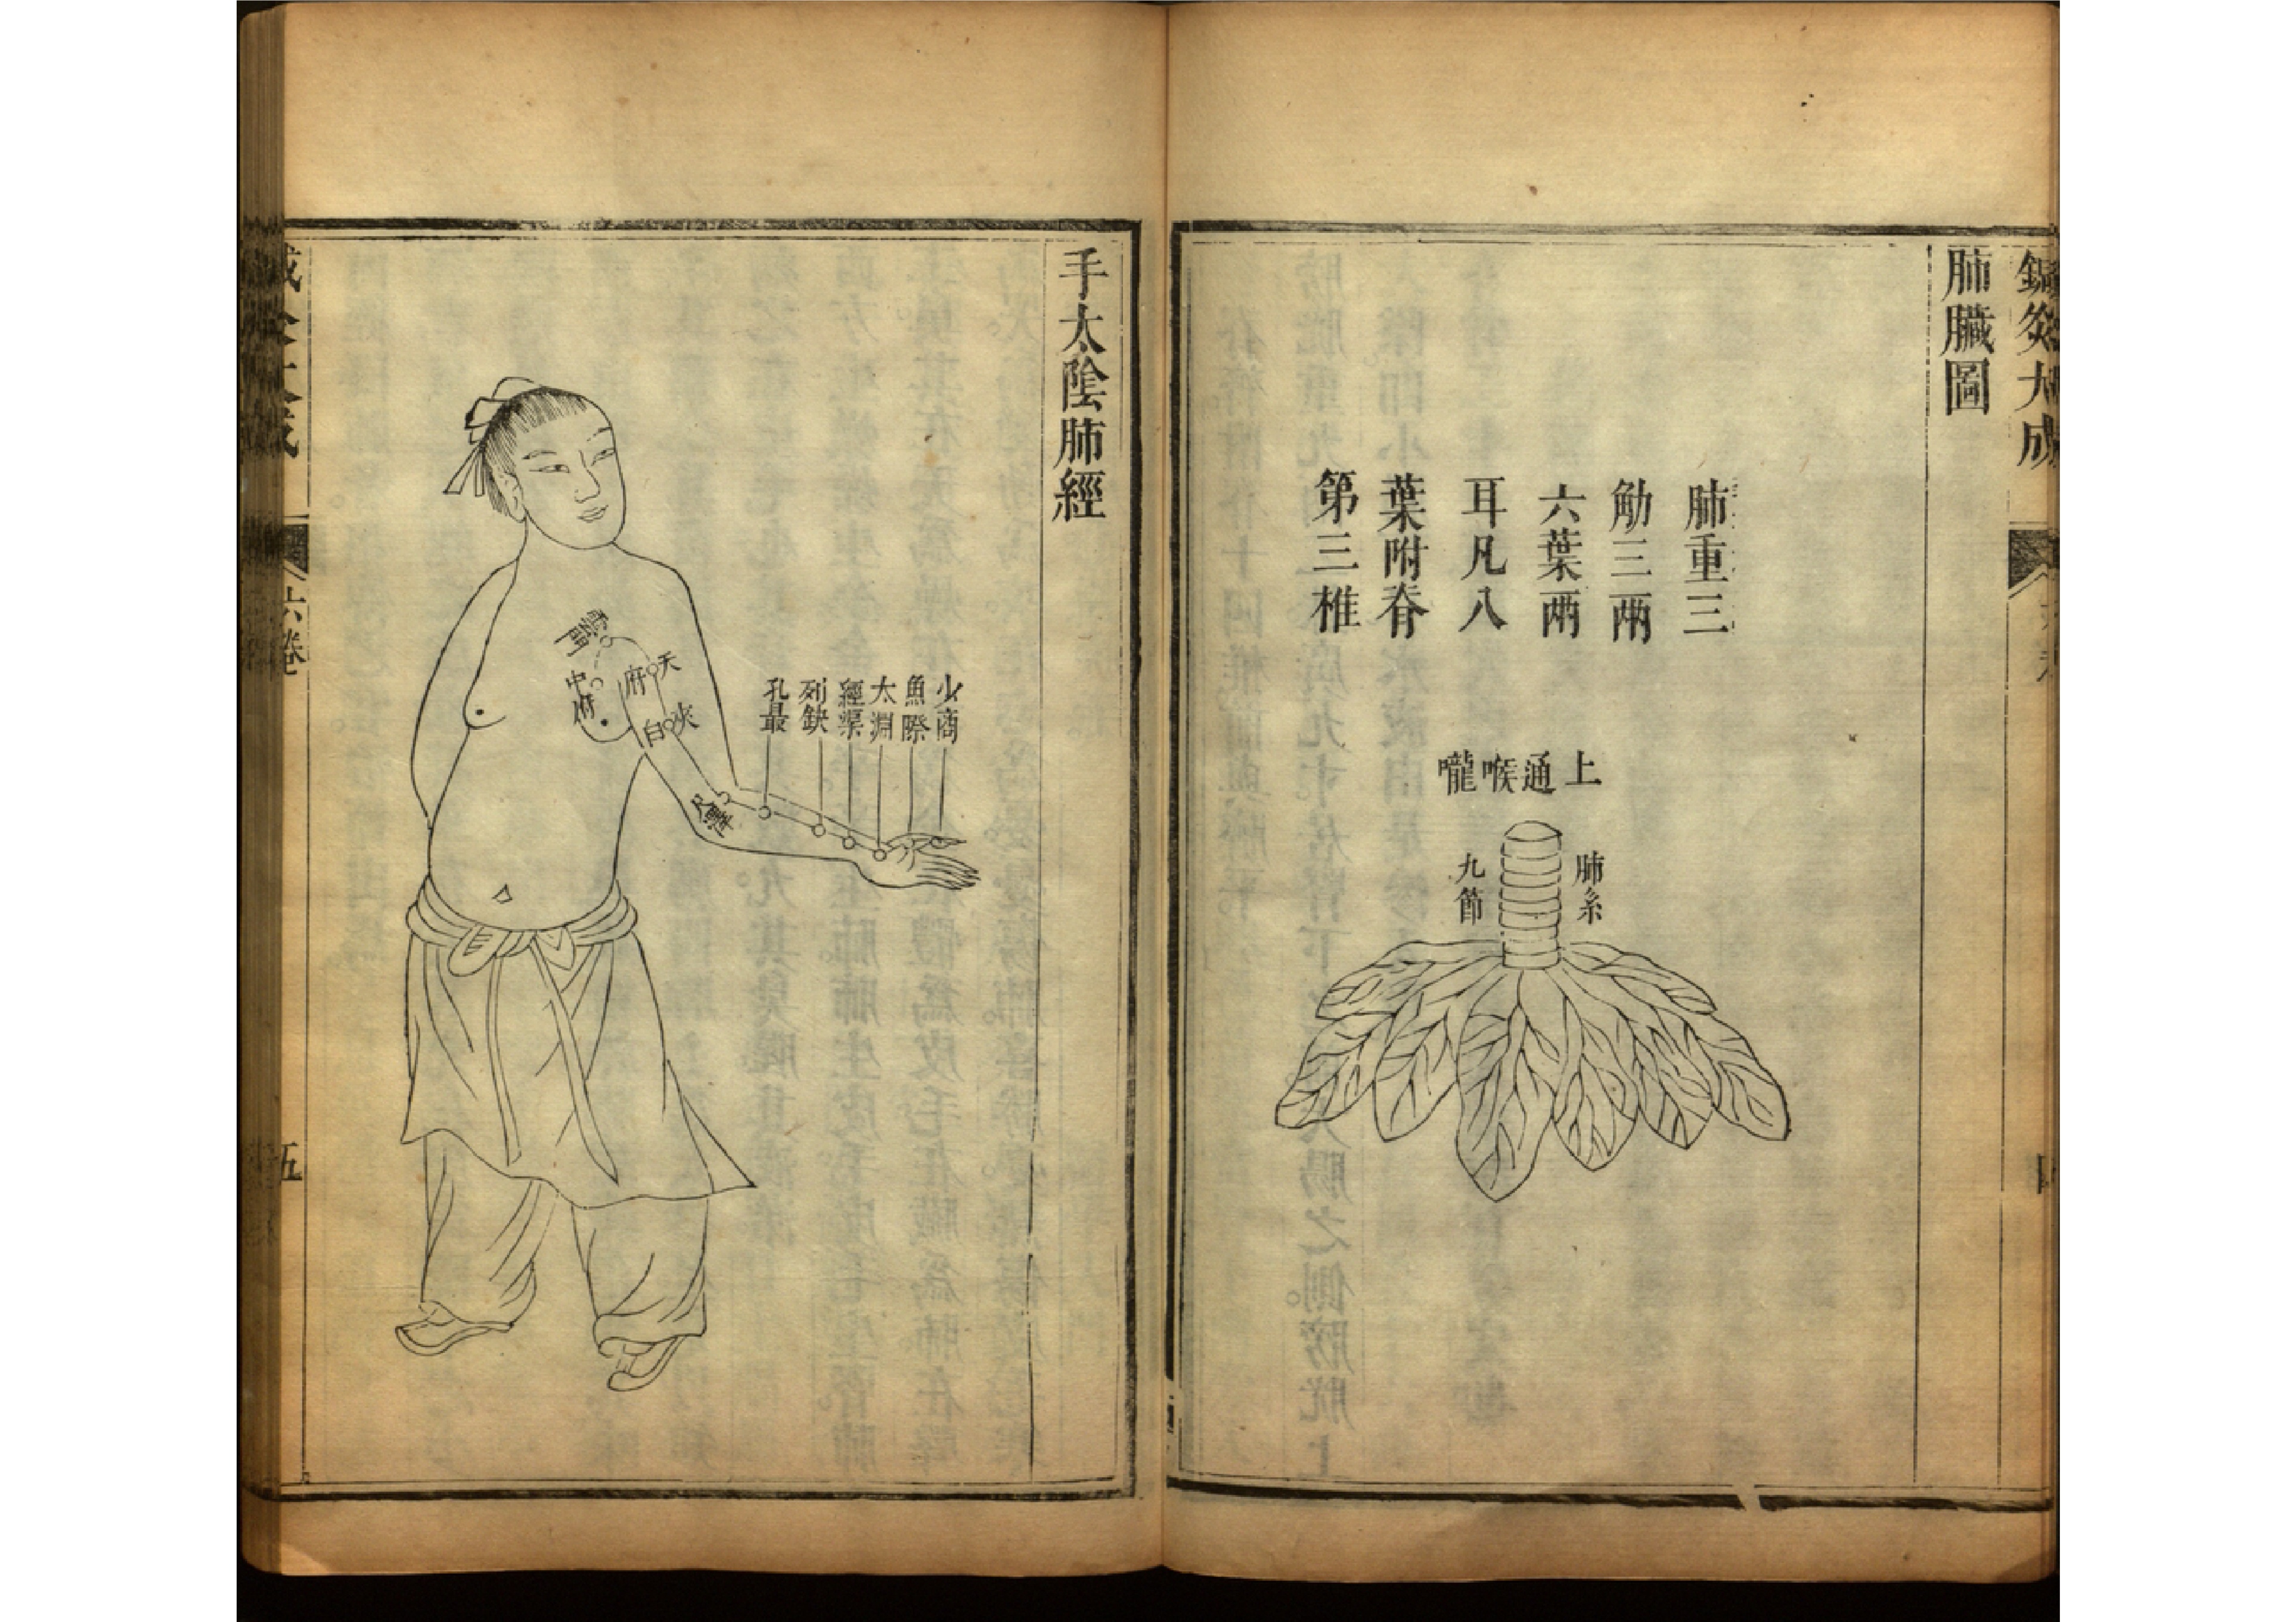 鍼灸大成
肺臟圖
肺重三
觔三兩
六葉兩
耳凡八
葉附脊
第三椎
上通喉嚨
肺系
九節
手太陰肺經
少商
魚際
太淵
經渠
列缺
孔最
天府
夾白
尺澤
雲門
中府
六卷
五